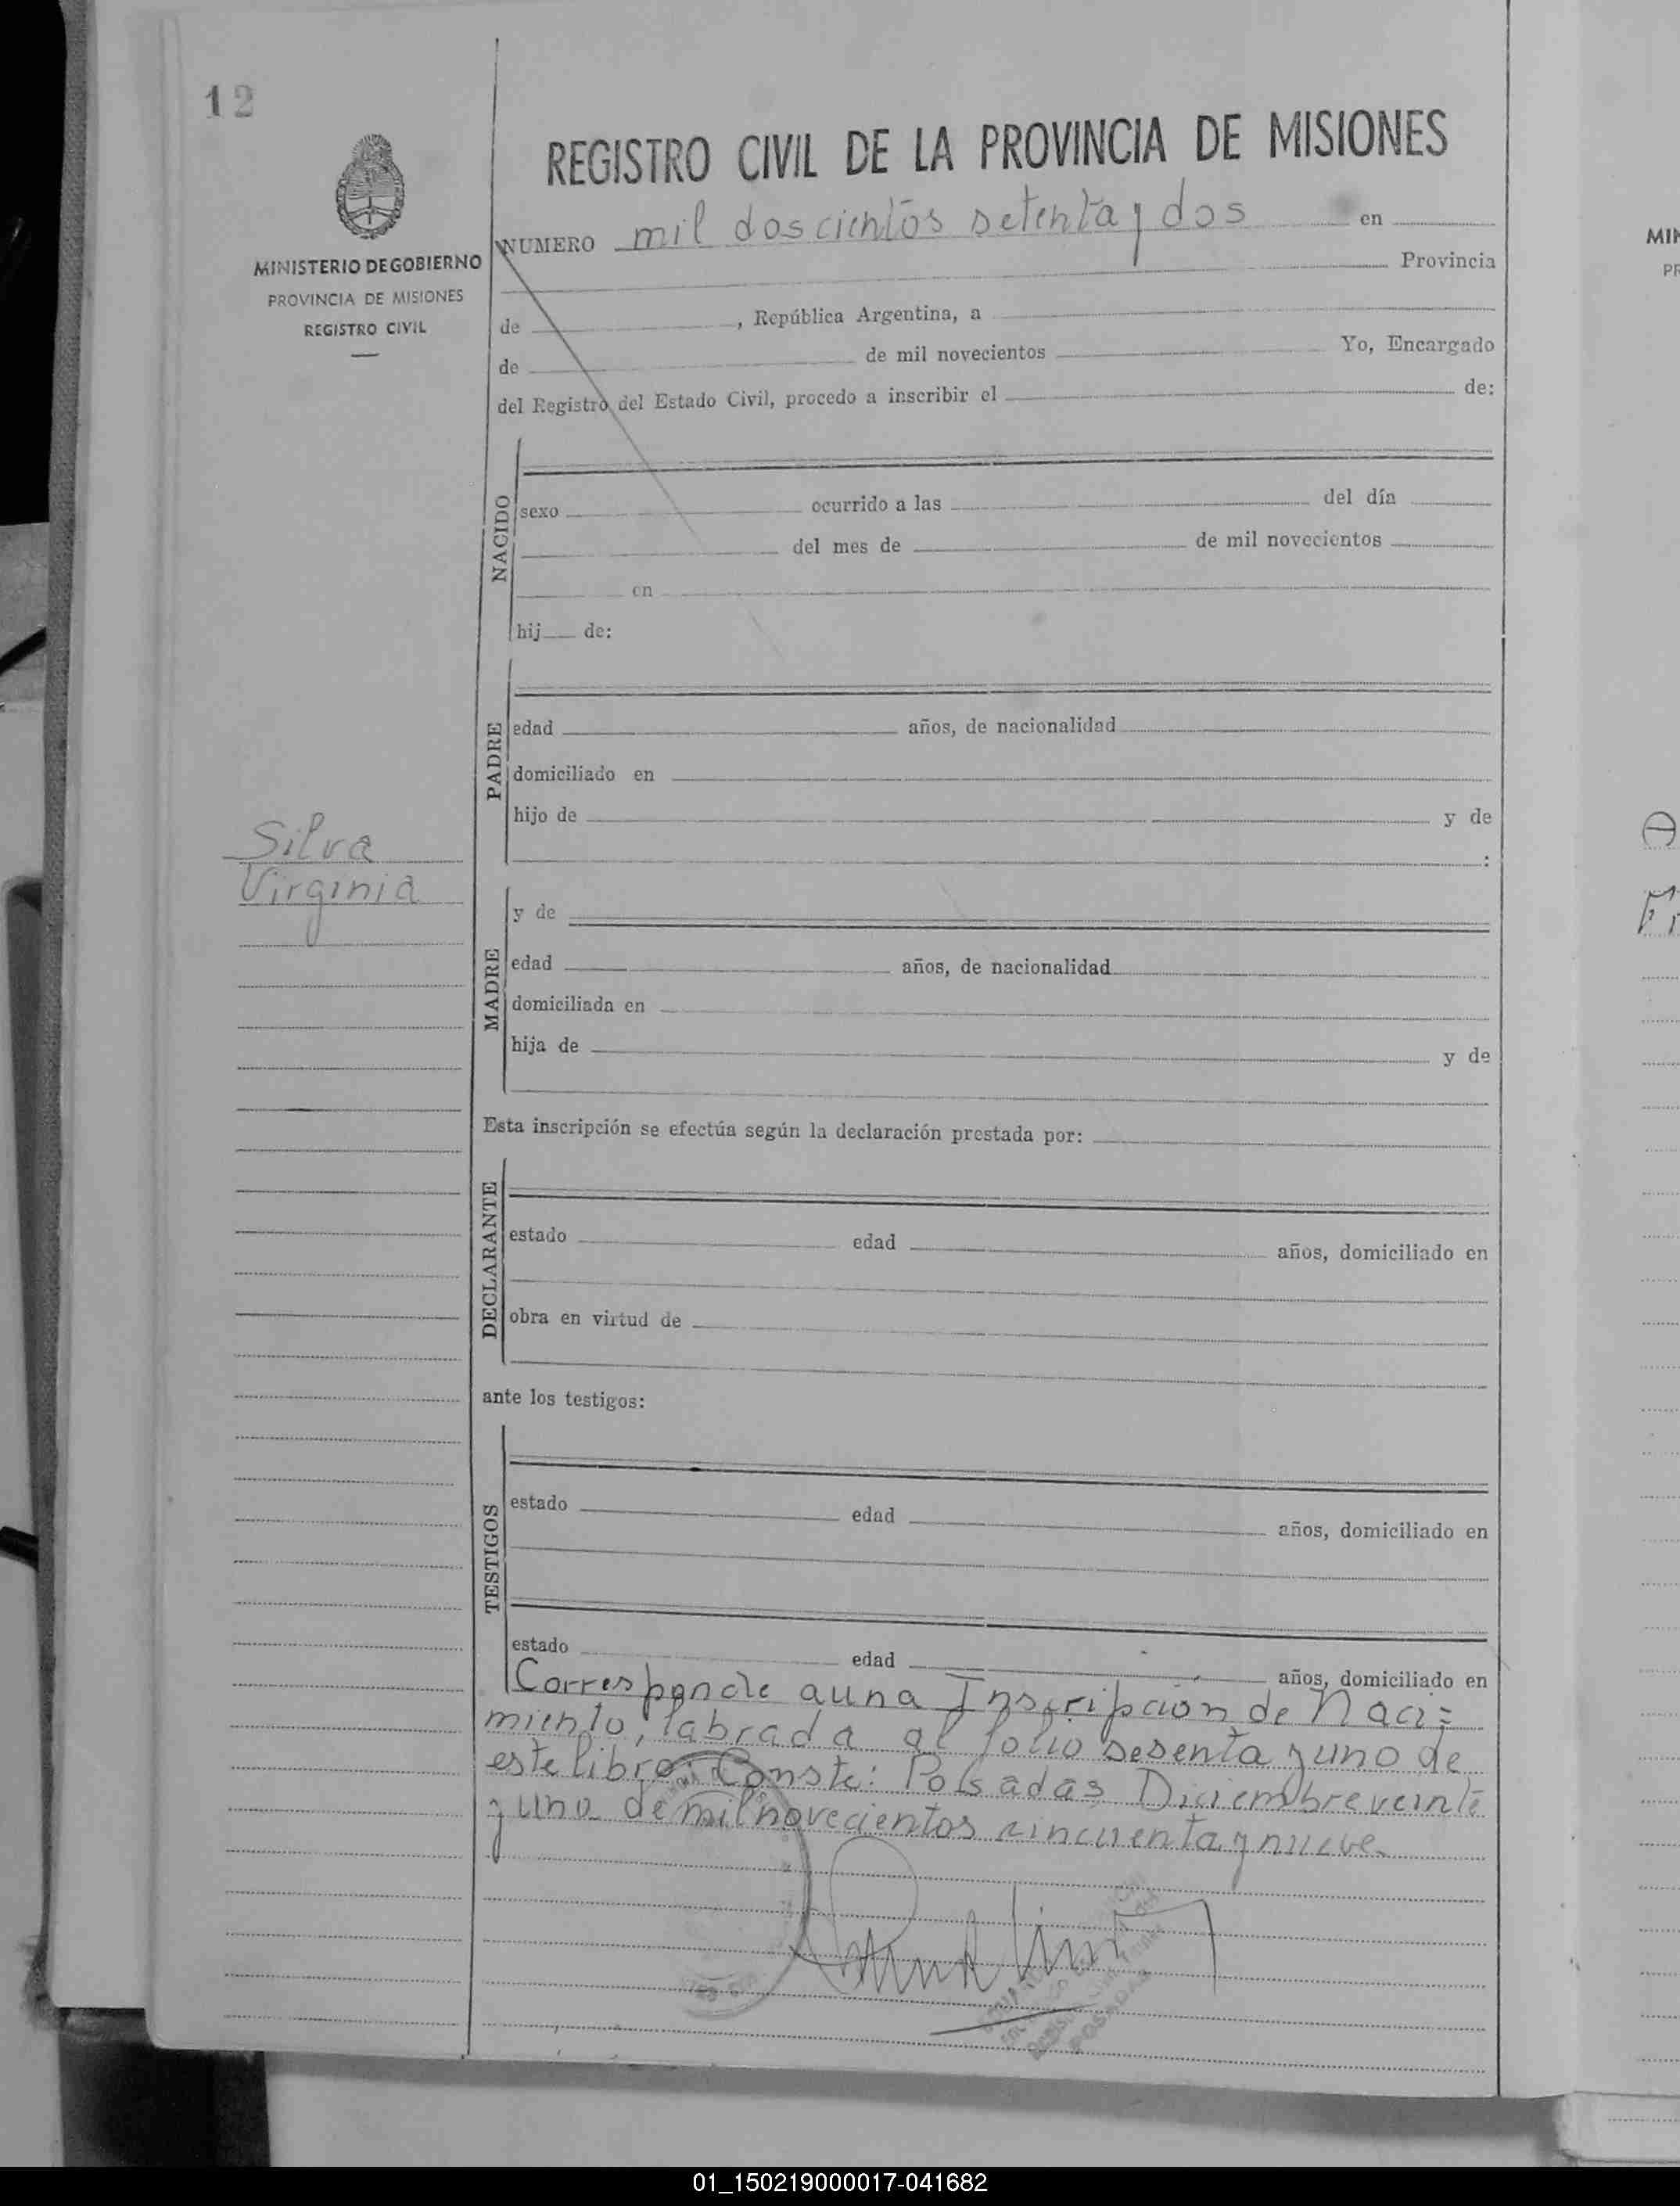 12
REGISTRO CIVIL DE LA PROVINCIA DE MISIONES
MINISTERIO DE GOBIERNO
PROVINCIA DE MISIONES
REGISTRO CIVIL
NUMERO mil doscientos setenta y dos en
Provincia
de , República Argentina, a
de de mil novecientos Yo, Encargado
del Registro del Estado Civil, procedo a inscribir el de:
NACIDO
sexo ocurrido a las del día
del mes de de mil novecientos
en
hij de:
PADRE
edad años, de nacionalidad
domiciliado en
hijo de y de
:
Silva
Virginia
MADRE
y de
edad años, de nacionalidad
domiciliada en
hija de y de
Esta inscripción se efectúa según la declaración prestada por:
DECLARANTE
estado edad años, domiciliado en
obra en virtud de
ante los testigos:
TESTIGOS
estado edad años, domiciliado en
estado edad años, domiciliado en
Corresponde a una Inscripción de Naci=
miento, labrada al folio sesenta y uno de
este libro. Conste: Posadas Diciembre veinte
y uno de mil novecientos cincuenta y nueve.
POSADAS
MIN
PR
01_150219000017-041682